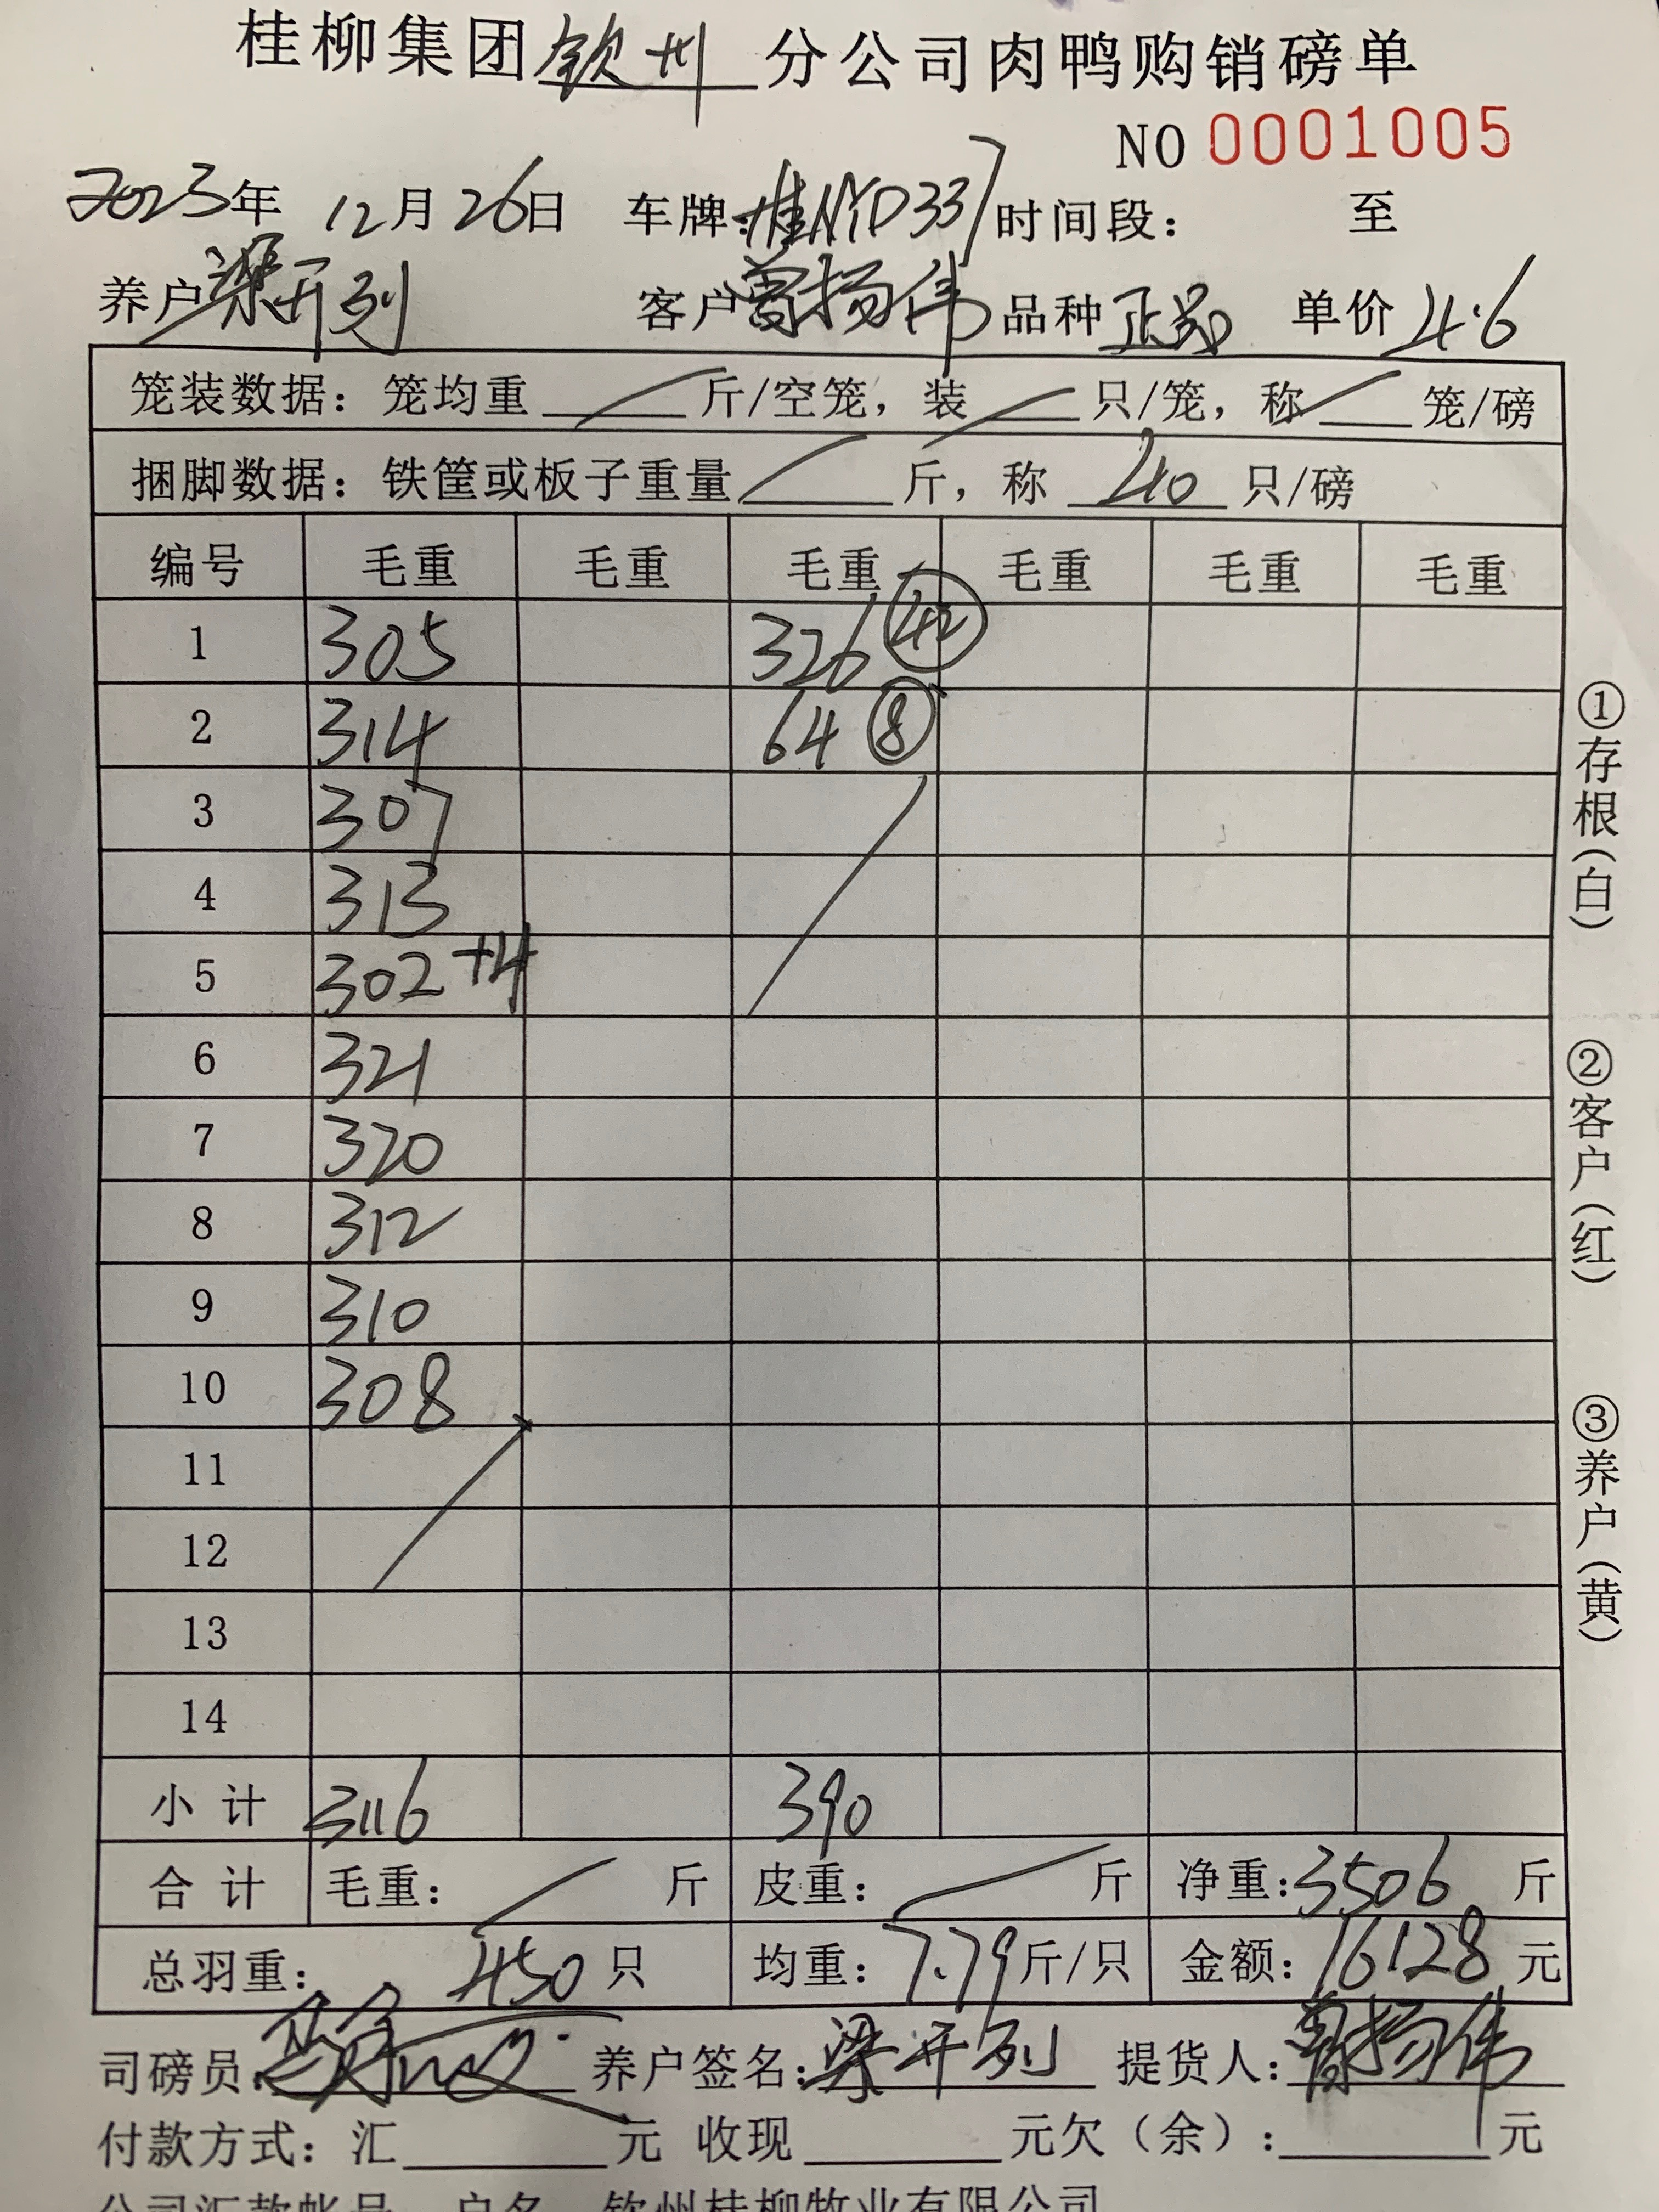 桂柳集团钦州分公司肉鸭购销磅单
NO 0001005
2023年 12月26日 车牌:桂NYD337 时间段: 至
养户 梁开列 客户 曾扬伟 品种 正品 单价 4.6
笼装数据:笼均重 斤/空笼,装 只/笼,称 笼/磅
捆脚数据:铁筐或板子重量 斤,称 40 只/磅
编号 毛重 毛重 毛重 毛重 毛重 毛重
1 305 326 ㊷
2 314 64 ⑧
3 307
4 313
5 302+4
6 321
7 320
8 312
9 310
10 308
11
12
13
14
小计 3116 390
合计 毛重: 斤 皮重: 斤 净重:3506 斤
总羽重: 450 只 均重:7.79斤/只 金额:16128元
司磅员: 养户签名:梁开列 提货人:曾扬伟
付款方式:汇 元 收现 元欠(余): 元
公司汇款帐号 户名 钦州桂柳牧业有限公司
①存根(白)
②客户(红)
③养户(黄)